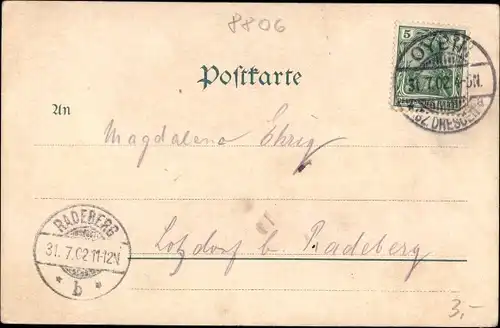 8806
5
OYBIN
31. 7. 02
BZ. DRESDEN
Postkarte
An
Magdalena Ehrig
RADEBERG
31. 7. 02 11-12 N.
* b *
Lotzdorf b. Radeberg
3,-